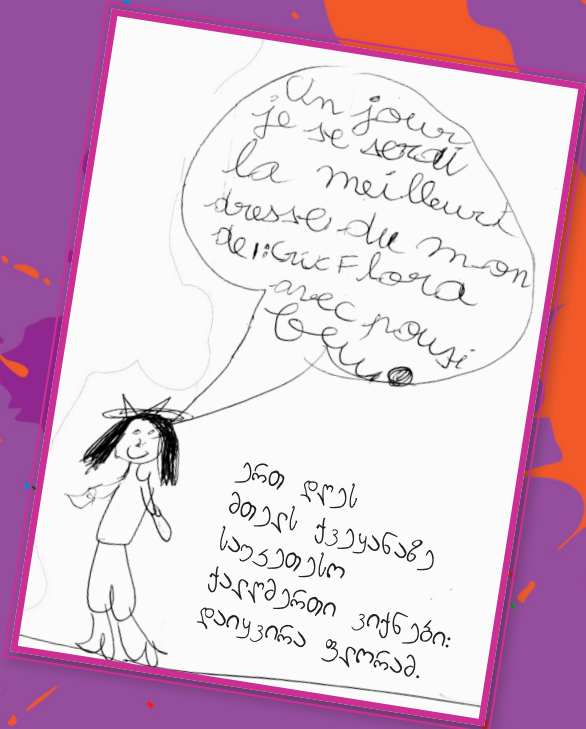 Un jour
je se serai
la meilleurt
dresse du mon
de i: Crix Flora
avec pousi
ერთ დღეს
მთელს ქვეყანაზე
საუკეთესო
ქალღმერთი ვიქნები:
დაიყვირა ფლორამ.